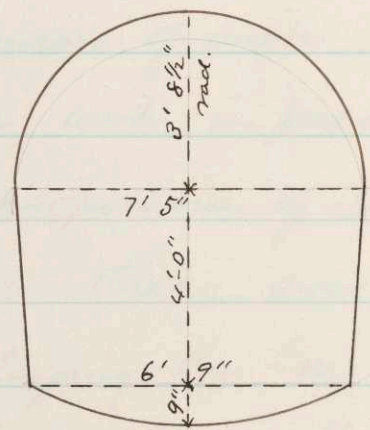 3' 8½" rad.
7' 5"
4'-0"
6' 9"
9"